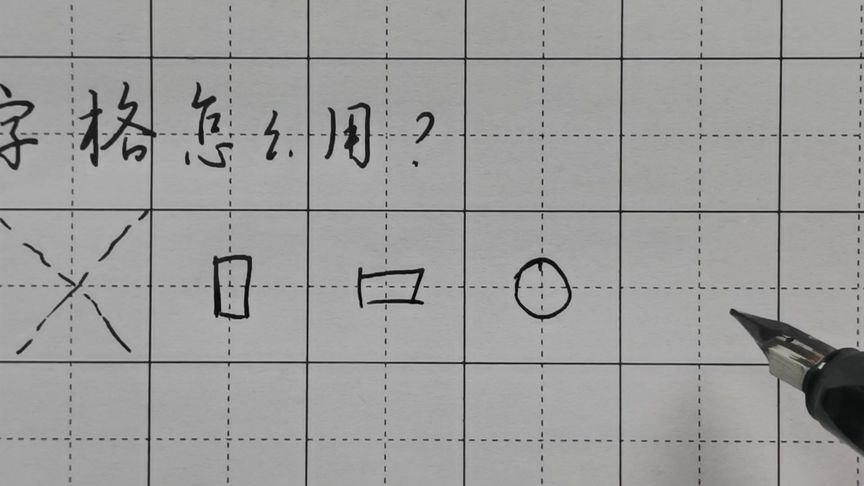 字格怎么用？